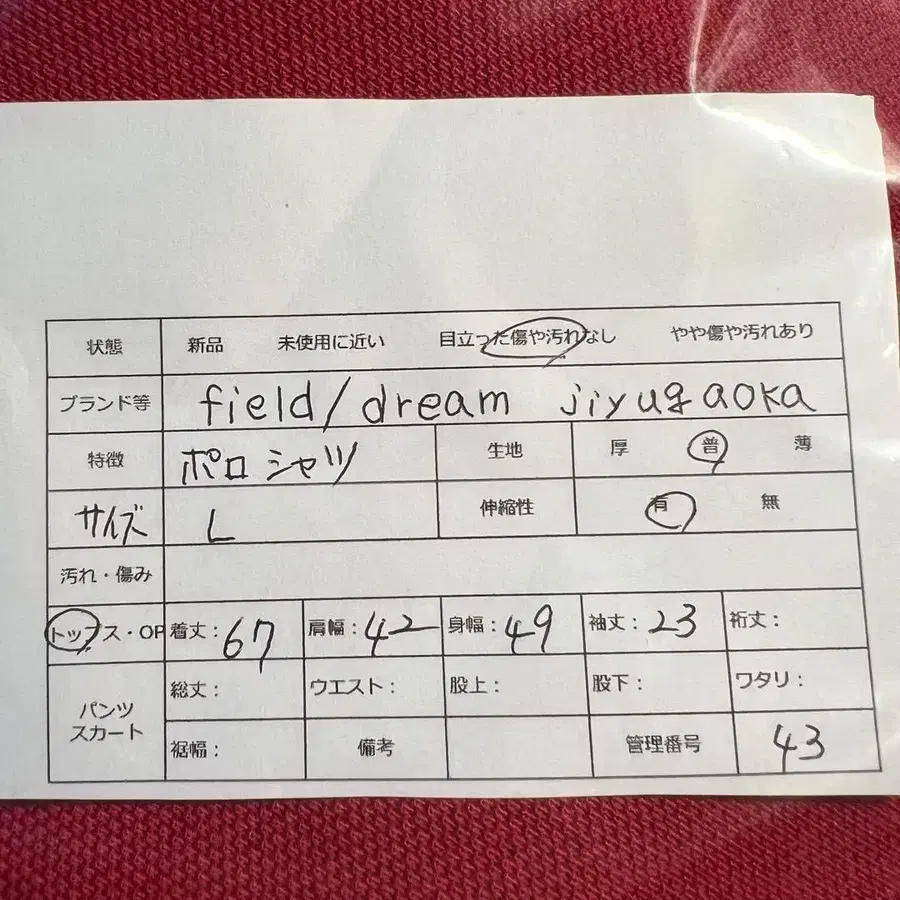 状態 新品 未使用に近い 目立った傷や汚れなし やや傷や汚れあり
ブランド等 field/dream jiyugaoka
特徴 ポロシャツ 生地 厚 普 薄
サイズ L 伸縮性 有 無
汚れ・傷み
トップス・OP 着丈: 67 肩幅: 42 身幅: 49 袖丈: 23 裄丈:
パンツ スカート 総丈: ウエスト: 股上: 股下: ワタリ:
裾幅: 備考 管理番号 43